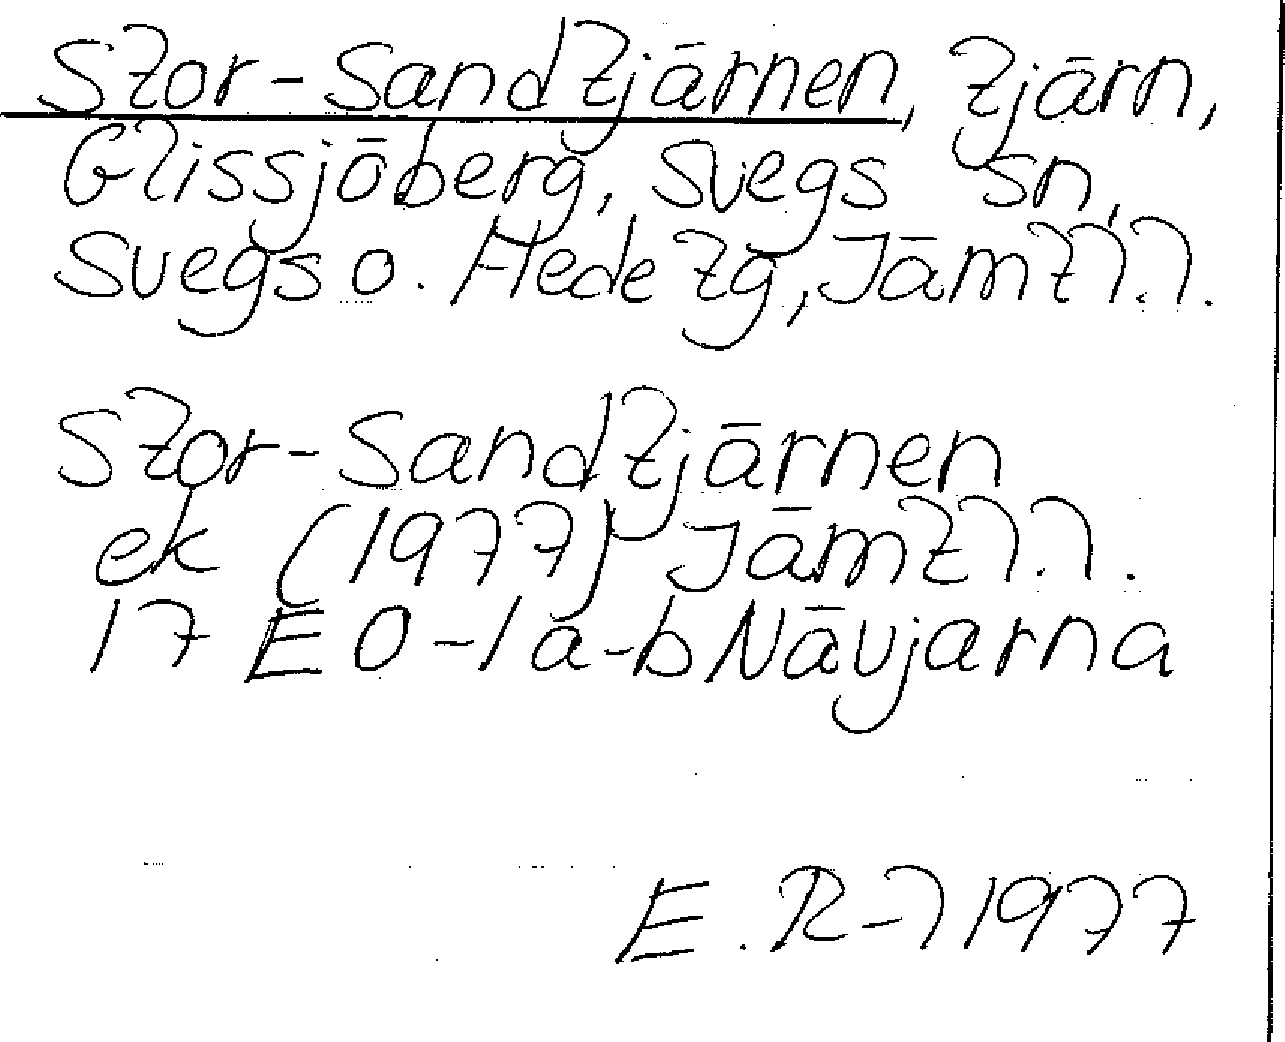 Stor-Sandtjärnen, tjärn,
Glissjöberg, Svegs sn,
Svegs o. Hede tg, Jämtl.l.
Stor-Sandtjärnen
ek (1977) Jämtl.l.
17 E 0-1 a-b Nävjarna
E. R-l 1977